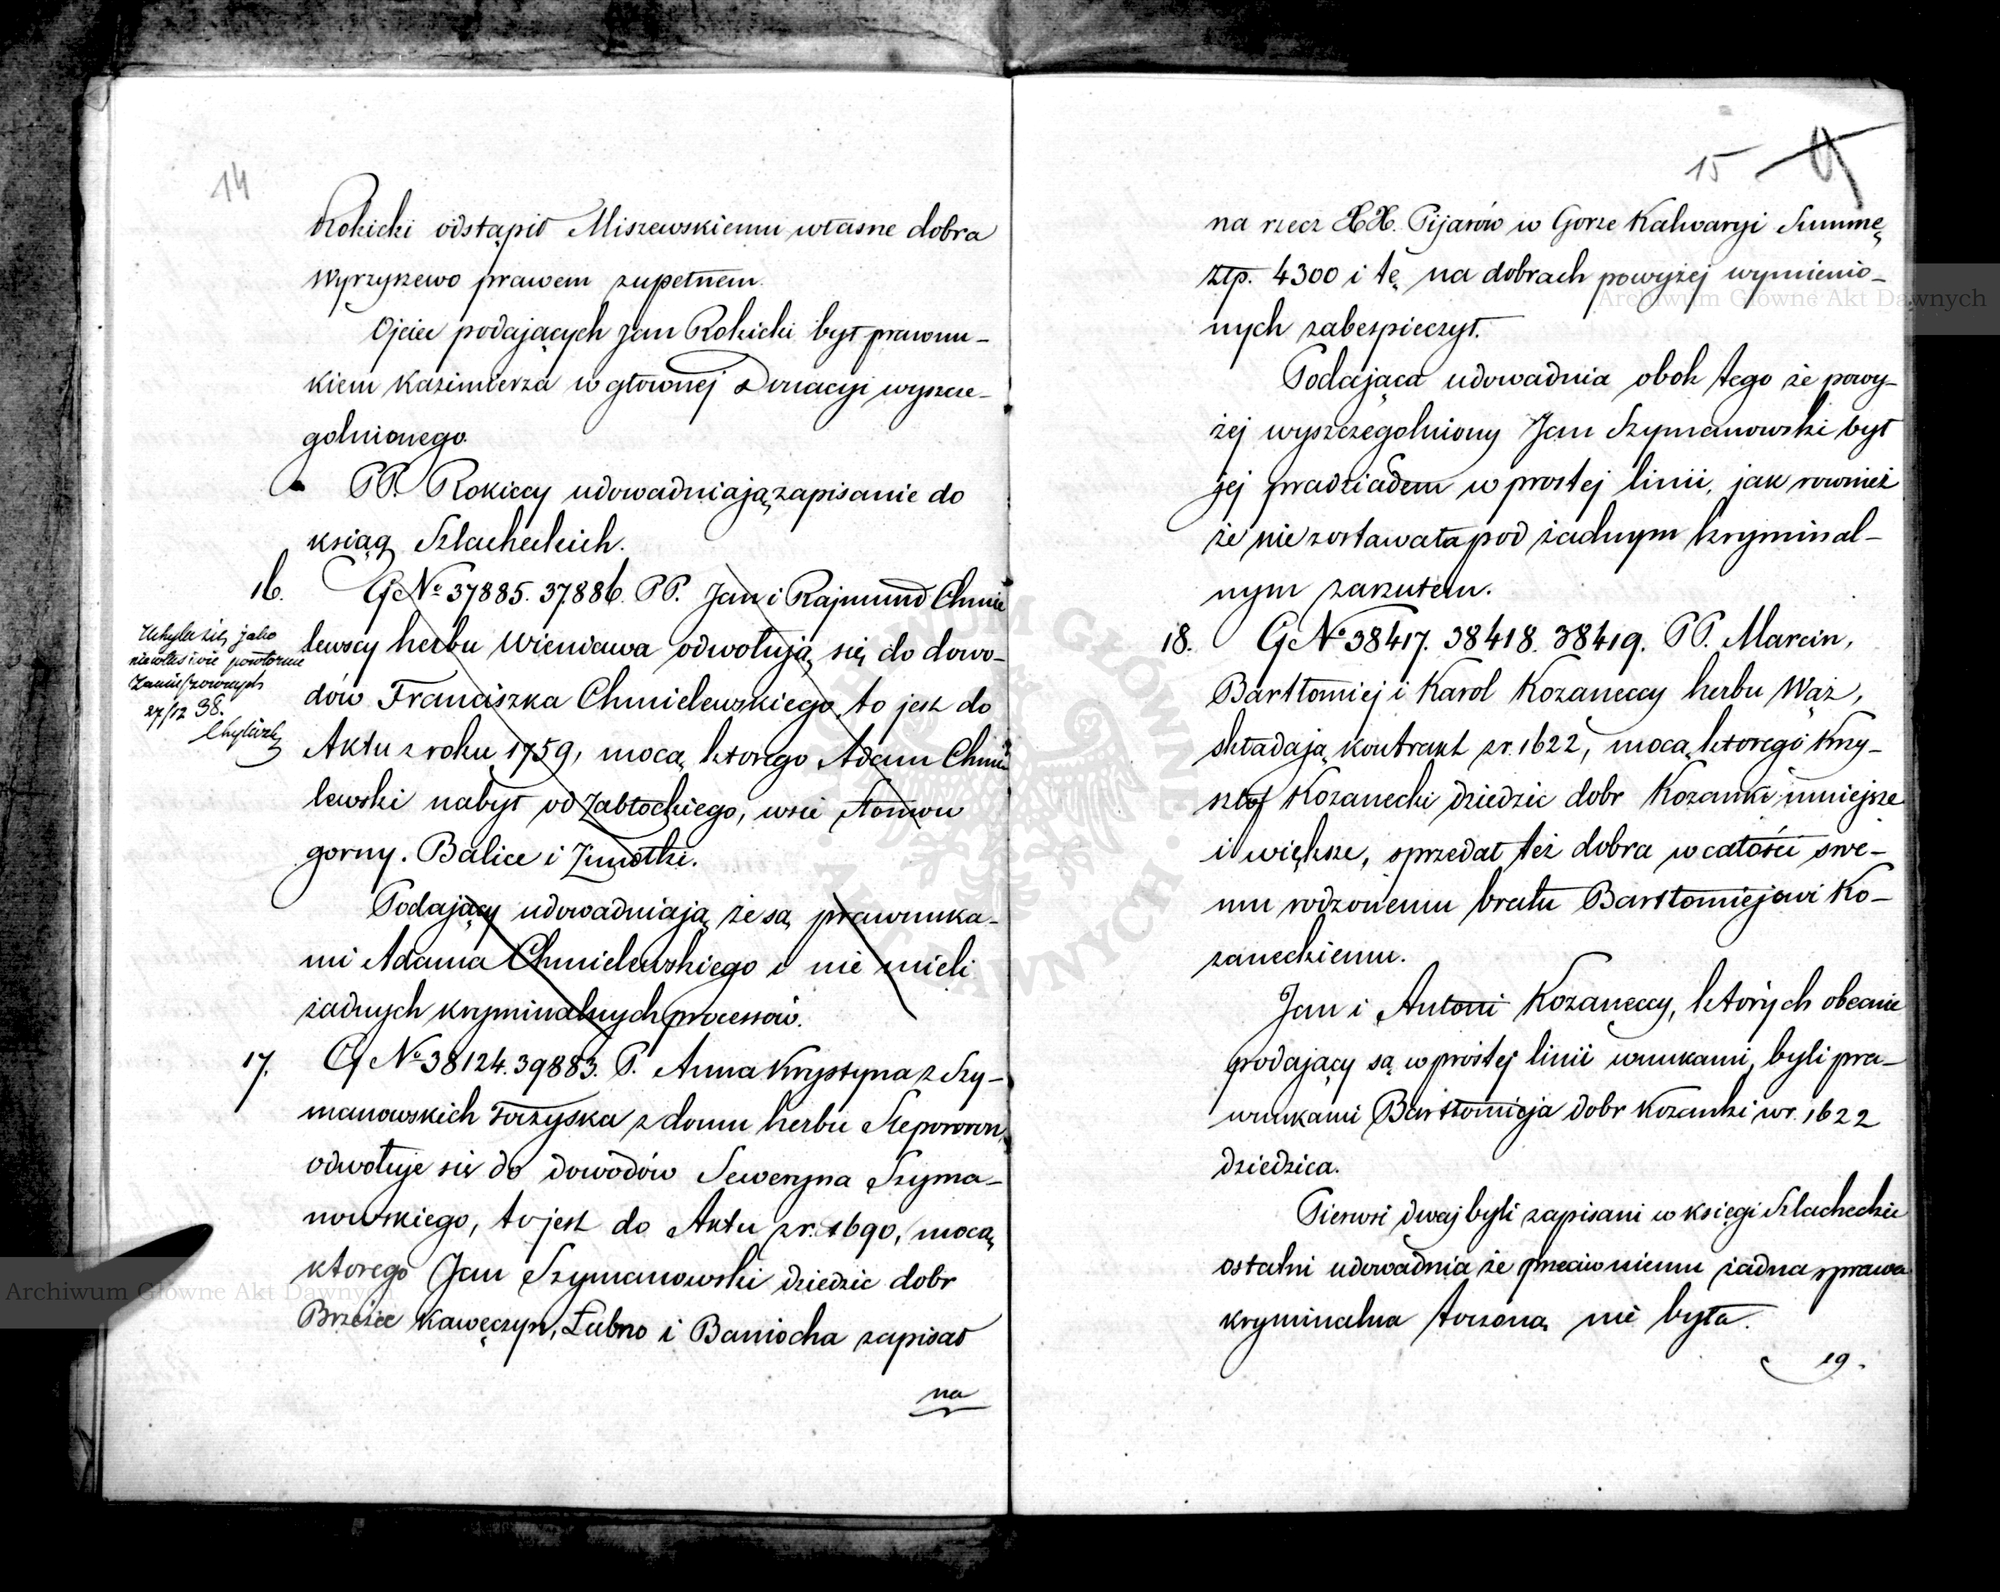 14
Rokicki odstąpił Miszewskiemu własne dobra
Wyrzyszewo prawem zupełnem.
Ojciec podających Jan Rokicki był prawnu-
kiem Kazimierza w głownej Donacyi wyszcze-
golnionego.
PP. Rokiccy udowadniają zapisanie do
ksiąg Szlacheckich.
16. G No 37885. 37886. PP. Jan i Rajmund Chmie
lewscy herbu Wieniawa odwołują się do dowo-
dów Franciszka Chmielewskiego, to jest do
Aktu z roku 1759, mocą ktorego Adam Chmie
lewski nabył od Zabłockiego, wsie
gorny. Balice i
Podający udowadniają że są prawnuka-
mi Adama Chmielewskiego i nie mieli
żadnych kryminalnych processów.
Uchyla się jako
niewłaściwie powtornie
zamieszczonych
27/12 38.
17. G No 38124. 39883. P. Anna Krystyna z Szy-
manowskich Torzyska z domu herbu Slepowron,
odwołuje się do dowodów Seweryna Szyma-
nowskiego, to jest do Aktu z r. 1690, mocą
ktorego Jan Szymanowski dziedzic dobr
Brześce Kawęczyn, Łubno i Baniocha zapisał
na
15
na rzecz XX. Pijarów w Gorze Kalwaryi Summę
złp. 4300 i tę na dobrach powyżej wymienio-
nych zabespieczył.
Podająca udowadnia obok tego że powy-
żej wyszczegolniony Jan Szymanowski był
jej pradziadem w prostej linii, jak rownież
że nie zostawała pod żadnym kryminal-
nym zarzutem.
18. G No 38417. 38418. 38419. PP. Marcin,
Bartłomiej i Karol Kozaneccy herbu Wąż,
składają kontrakt z r. 1622, mocą ktorego Krzy-
sztof Kozanecki dziedzic dobr Kozanki mniejsze
i większe, sprzedał też dobra w całości swe-
mu rodzonemu bratu Bartłomiejowi Ko-
zaneckiemu.
Jan i Antoni Kozaneccy, których obecnie
podający są w prostej linii wnukami, byli pra-
wnukami Bartłomieja dobr Kozanki w r. 1622
dziedzica.
Pierwsi dwaj byli zapisani w księgi Szlacheckie
ostatni udowadnia że przeciw niemu żadna sprawa
kryminalna toczoną nie była.
19.
Archiwum Główne Akt Dawnych
Archiwum Główne Akt Dawnych
ARCHIWUM GŁÓWNE AKT DAWNYCH